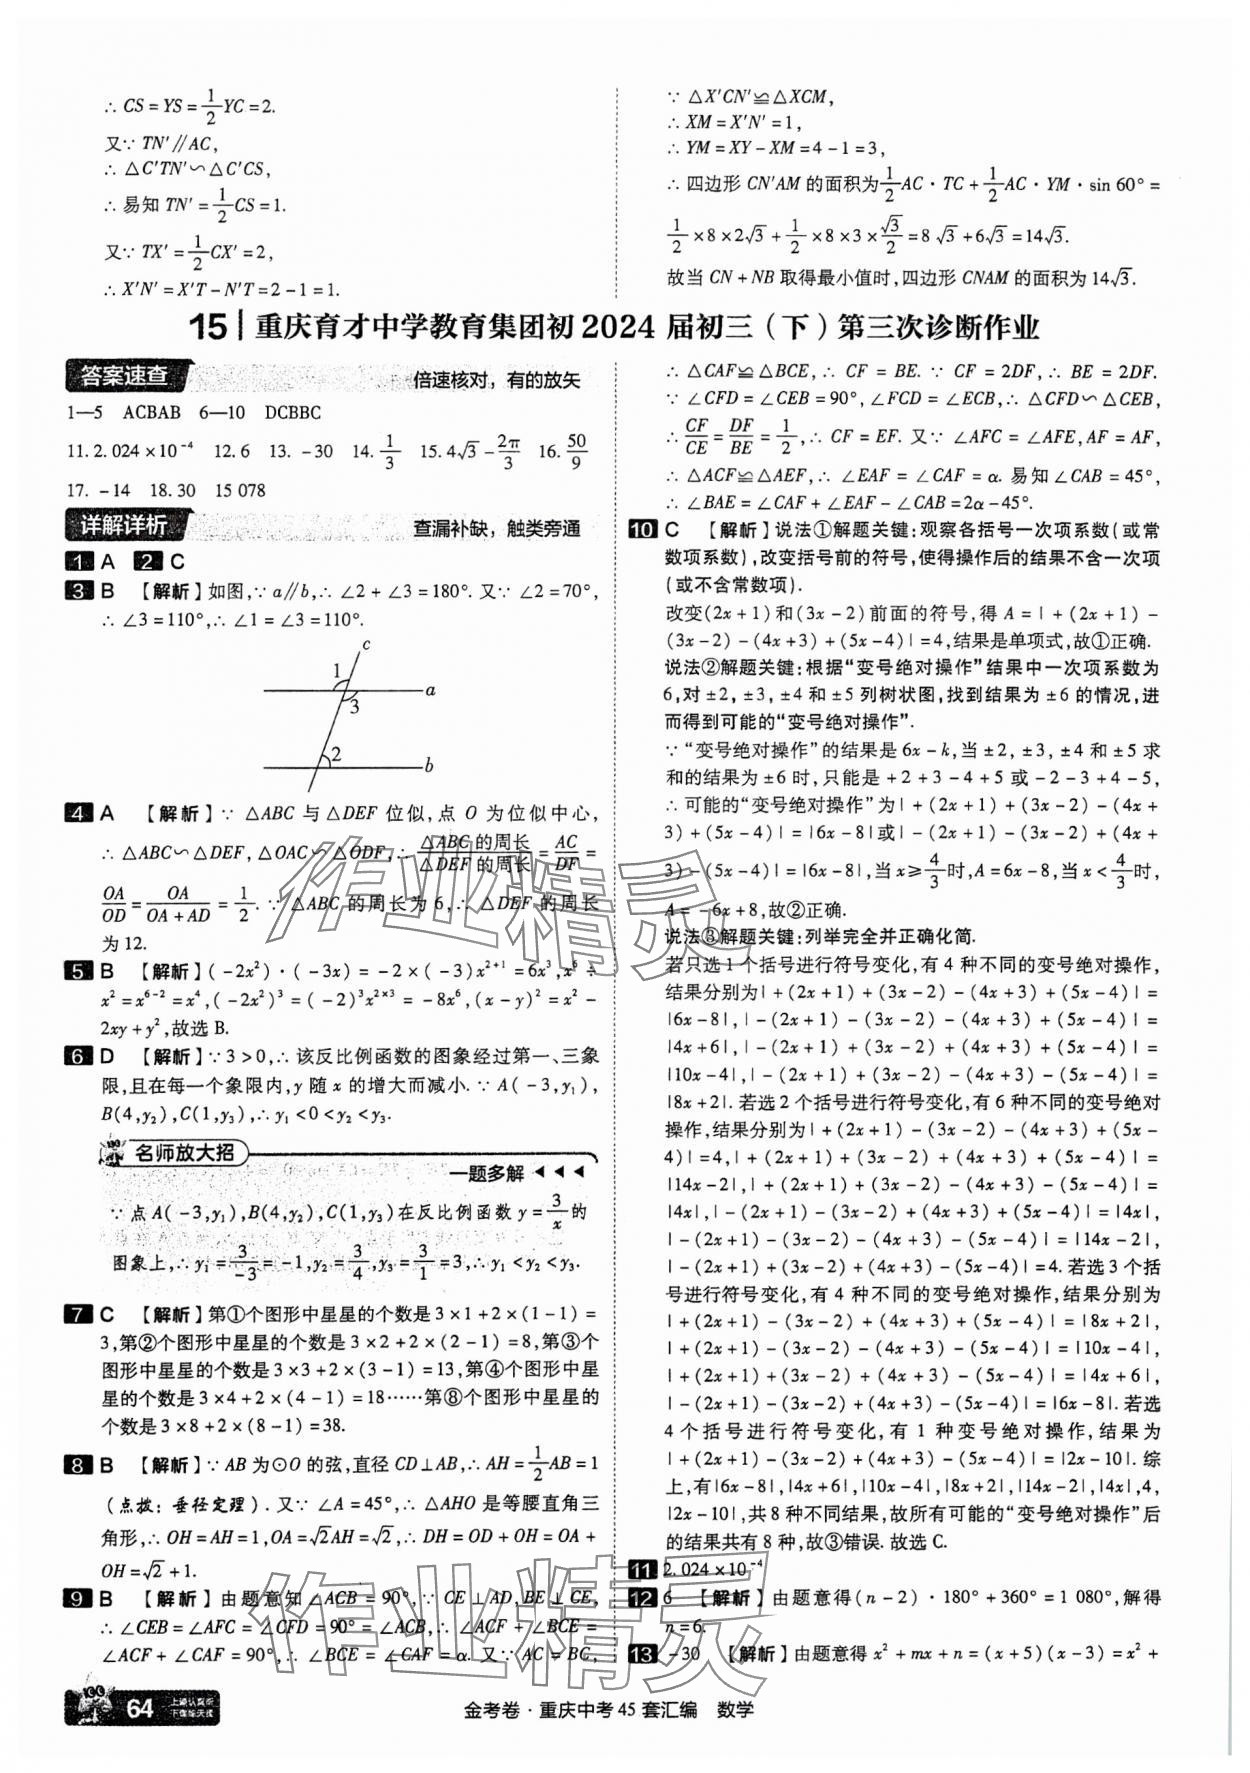 ∴ CS = YS = 1/2 YC = 2.
又∵ TN' ∥ AC,
∴ △C'TN' ∽ △C'CS,
∴ 易知 TN' = 1/2 CS = 1.
又∵ TX' = 1/2 CX' = 2,
∴ X'N' = X'T - N'T = 2 - 1 = 1.
∵ △X'CN' ≌ △XCM,
∴ XM = X'N' = 1,
∴ YM = XY - XM = 4 - 1 = 3,
∴ 四边形 CN'AM 的面积为 1/2 AC · TC + 1/2 AC · YM · sin 60° =
1/2 × 8 × 2√3 + 1/2 × 8 × 3 × √3/2 = 8√3 + 6√3 = 14√3.
故当 CN + NB 取得最小值时,四边形 CNAM 的面积为 14√3.
15 | 重庆育才中学教育集团初 2024 届初三（下）第三次诊断作业
答案速查 倍速核对，有的放矢
1—5 ACBAB 6—10 DCBBC
11. 2.024 × 10⁻⁴ 12. 6 13. -30 14. 1/3 15. 4√3 - 2π/3 16. 50/9
17. -14 18. 30 15 078
详解详析 查漏补缺，触类旁通
1 A 2 C
3 B 【解析】如图,∵ a∥b,∴ ∠2 + ∠3 = 180°. 又∵ ∠2 = 70°,
∴ ∠3 = 110°,∴ ∠1 = ∠3 = 110°.
c
1
a
3
2
b
4 A 【解析】∵ △ABC 与 △DEF 位似,点 O 为位似中心,
∴ △ABC ∽ △DEF, △OAC ∽ △ODF,∴ △ABC 的周长/△DEF 的周长 = AC/DF =
OA/OD = OA/(OA + AD) = 1/2. ∵ △ABC 的周长为 6,∴ △DEF 的周长
为 12.
5 B 【解析】(-2x²) · (-3x) = -2 × (-3)x²⁺¹ = 6x³, x⁶ ÷
x² = x⁶⁻² = x⁴, (-2x²)³ = (-2)³x²ˣ³ = -8x⁶, (x - y)² = x² -
2xy + y²,故选 B.
6 D 【解析】∵ 3 > 0,∴ 该反比例函数的图象经过第一、三象
限,且在每一个象限内,y 随 x 的增大而减小. ∵ A(-3,y₁),
B(4,y₂),C(1,y₃),∴ y₁ < 0 < y₂ < y₃.
名师放大招
一题多解 ◀ ◀ ◀
∵ 点 A(-3,y₁),B(4,y₂),C(1,y₃)在反比例函数 y = 3/x 的
图象上,∴ y₁ = 3/-3 = -1,y₂ = 3/4,y₃ = 3/1 = 3,∴ y₁ < y₂ < y₃.
7 C 【解析】第①个图形中星星的个数是 3 × 1 + 2 × (1 - 1) =
3,第②个图形中星星的个数是 3 × 2 + 2 × (2 - 1) = 8,第③个
图形中星星的个数是 3 × 3 + 2 × (3 - 1) = 13,第④个图形中星
星的个数是 3 × 4 + 2 × (4 - 1) = 18……第⑧个图形中星星的
个数为 3 × 8 + 2 × (8 - 1) = 38.
8 B 【解析】∵ AB 为 ⊙O 的弦,直径 CD ⊥ AB,∴ AH = 1/2 AB = 1
(点拨: 垂径定理). 又∵ ∠A = 45°,∴ △AHO 是等腰直角三
角形,∴ OH = AH = 1,OA = √2AH = √2,∴ DH = OD + OH = OA +
OH = √2 + 1.
9 B 【解析】由题意知 ∠ACB = 90°,∵ CE ⊥ AD,BE ⊥ CE,
∴ ∠CEB = ∠AFC = ∠CFD = 90° = ∠ACB,∴ ∠ACF + ∠BCE =
∠ACF + ∠CAF = 90°,∴ ∠BCE = ∠CAF = α. 又∵ AC = BC,
∴ △CAF ≌ △BCE,∴ CF = BE. ∵ CF = 2DF,∴ BE = 2DF.
∵ ∠CFD = ∠CEB = 90°, ∠FCD = ∠ECB,∴ △CFD ∽ △CEB,
∴ CF/CE = DF/BE = 1/2,∴ CF = EF. 又∵ ∠AFC = ∠AFE,AF = AF,
∴ △ACF ≌ △AEF,∴ ∠EAF = ∠CAF = α. 易知 ∠CAB = 45°,
∴ ∠BAE = ∠CAF + ∠EAF - ∠CAB = 2α - 45°.
10 C 【解析】说法①解题关键:观察各括号一次项系数(或常
数项系数),改变括号前的符号,使得操作后的结果不含一次项
(或不含常数项).
改变(2x + 1)和(3x - 2)前面的符号,得 A = | + (2x + 1) -
(3x - 2) - (4x + 3) + (5x - 4) | = 4,结果是单项式,故①正确.
说法②解题关键:根据“变号绝对操作”结果中一次项系数为
6,对 ±2, ±3, ±4 和 ±5 列树状图,找到结果为 ±6 的情况,进
而得到可能的“变号绝对操作”.
∵ “变号绝对操作”的结果是 6x - k,当 ±2, ±3, ±4 和 ±5 求
和的结果为 ±6 时,只能是 + 2 + 3 - 4 + 5 或 - 2 - 3 + 4 - 5,
∴ 可能的“变号绝对操作”为| + (2x + 1) + (3x - 2) - (4x +
3) + (5x - 4) | = |6x - 8|或| - (2x + 1) - (3x - 2) + (4x +
3) - (5x - 4) | = |6x - 8|,当 x ≥ 4/3 时,A = 6x - 8,当 x < 4/3 时,
A = -6x + 8,故②正确.
说法③解题关键:列举完全并正确化简.
若只选 1 个括号进行符号变化,有 4 种不同的变号绝对操作,
结果分别为| + (2x + 1) + (3x - 2) - (4x + 3) + (5x - 4) | =
|6x - 8|,| - (2x + 1) - (3x - 2) - (4x + 3) + (5x - 4) | =
|4x + 6|,| - (2x + 1) + (3x - 2) + (4x + 3) + (5x - 4) | =
|10x - 4|,| - (2x + 1) + (3x - 2) - (4x + 3) - (5x - 4) | =
|8x + 2|. 若选 2 个括号进行符号变化,有 6 种不同的变号绝对
操作,结果分别为| + (2x + 1) - (3x - 2) - (4x + 3) + (5x -
4) | = 4,| + (2x + 1) + (3x - 2) + (4x + 3) + (5x - 4) | =
|14x - 2|,| + (2x + 1) + (3x - 2) - (4x + 3) - (5x - 4) | =
|4x|,| - (2x + 1) - (3x - 2) + (4x + 3) + (5x - 4) | = |4x|,
| - (2x + 1) - (3x - 2) - (4x + 3) - (5x - 4) | = |14x - 2|,
| - (2x + 1) + (3x - 2) + (4x + 3) - (5x - 4) | = 4. 若选 3 个括
号进行符号变化,有 4 种不同的变号绝对操作,结果分别为
| + (2x + 1) - (3x - 2) + (4x + 3) + (5x - 4) | = |8x + 2|,
| + (2x + 1) - (3x - 2) - (4x + 3) - (5x - 4) | = |10x - 4|,
| + (2x + 1) + (3x - 2) + (4x + 3) - (5x - 4) | = |4x + 6|,
| - (2x + 1) - (3x - 2) + (4x + 3) - (5x - 4) | = |6x - 8|. 若选
4 个括号进行符号变化,有 1 种变号绝对操作,结果为
| + (2x + 1) - (3x - 2) + (4x + 3) - (5x - 4) | = |2x - 10|. 综
上,有|6x - 8|,|4x + 6|,|10x - 4|,|8x + 2|,|14x - 2|,|4x|,4,
|2x - 10|,共 8 种不同结果,故所有可能的“变号绝对操作”后
的结果共有 8 种,故③错误. 故选 C.
11 2.024 × 10⁻⁴
12 6 【解析】由题意得(n - 2) · 180° + 360° = 1 080°,解得
n = 6.
13 -30 【解析】由题意得 x² + mx + n = (x + 5)(x - 3) = x² +
64
金考卷 · 重庆中考 45 套汇编 数学
作业精灵
作业精灵